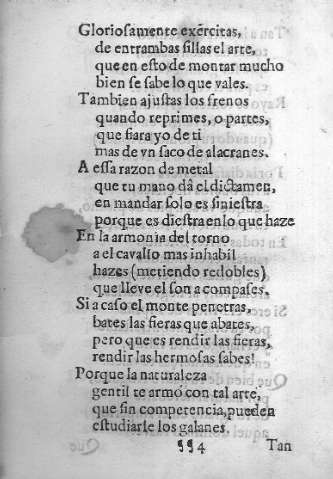 Gloriosamente exercitas,
de entrambas sillas el arte,
que en esto de montar mucho
bien se sabe lo que vales.
Tambien ajustas los frenos
quando reprimes, o partes,
que fiara yo de ti
mas de vn saco de alacranes.
A essa razon de metal
que tu mano dà el dictamen,
en mandar solo es siniestra
porque es diestra en lo que haze
En la armonia del torno
a el cavallo mas inhabil
hazes (metiendo redobles)
que lleve el son a compases,
Si a caso el monte penetras,
bates las fieras que abates,
pero que es rendir las fieras,
rendir las hermosas sabes!
Porque la naturaleza
gentil te armó con tal arte,
que sin competencia, pueden
estudiarle los galanes.
¶¶4 Tan